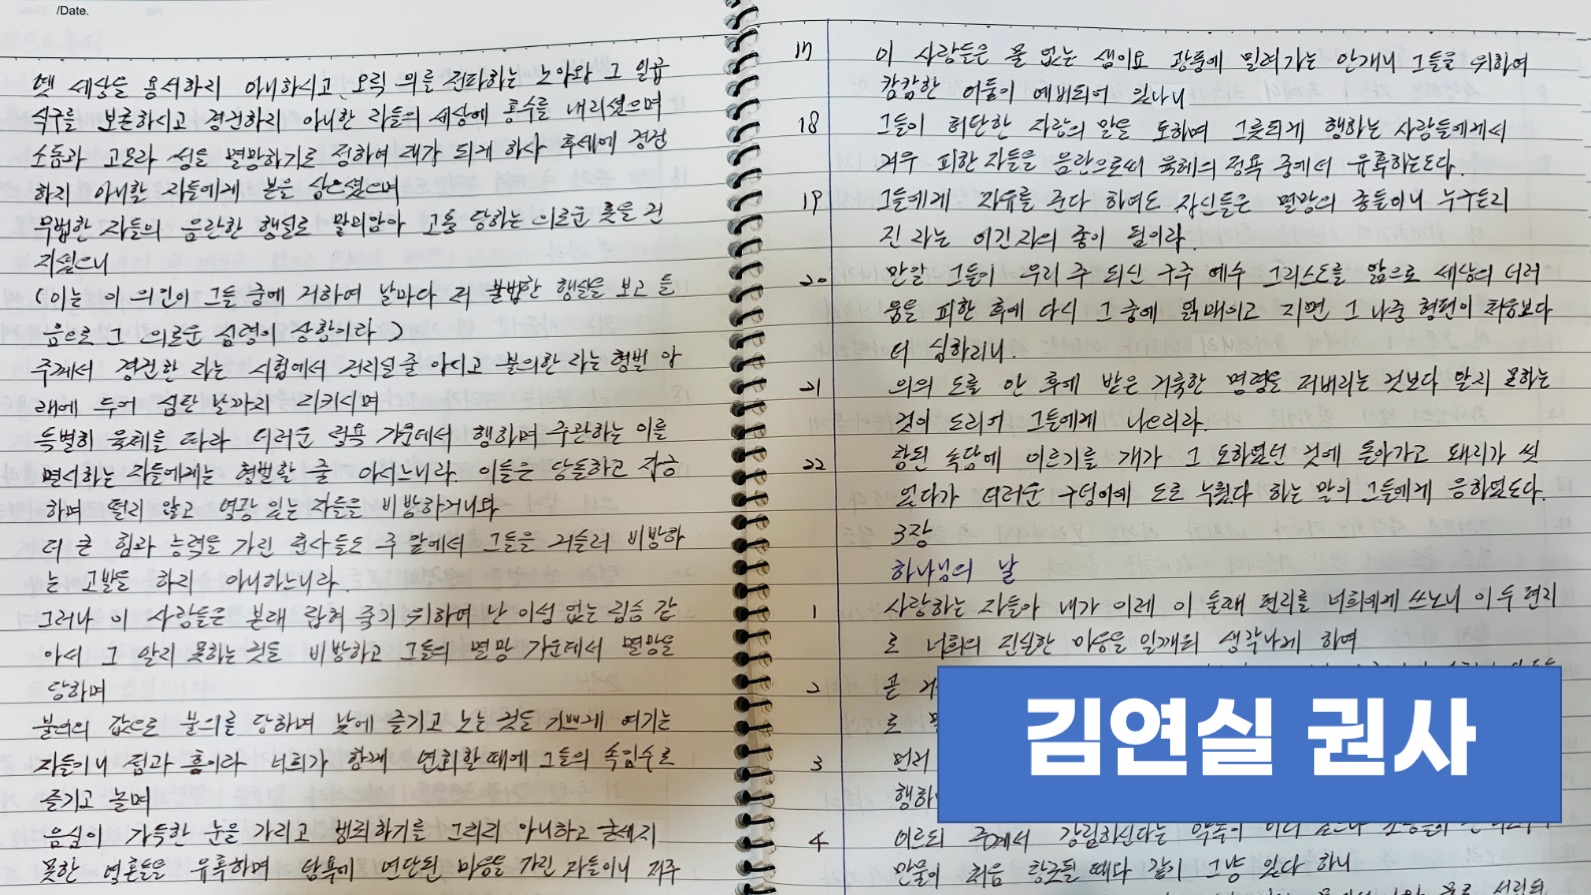 /Date.
옛 세상을 용서하지 아니하시고 오직 의를 전파하는 노아와 그 일곱
식구를 보존하시고 경건하지 아니한 자들의 세상에 홍수를 내리셨으며
소돔과 고모라 성을 멸망하기로 정하여 재가 되게 하사 후세에 경건
하지 아니할 자들에게 본을 삼으셨으며
무법한 자들의 음란한 행실로 말미암아 고통 당하는 의로운 롯을 건
지셨으니
(이는 이 의인이 그들 중에 거하여 날마다 저 불법한 행실을 보고 들
음으로 그 의로운 심령이 상함이라)
주께서 경건한 자는 시험에서 건지실 줄 아시고 불의한 자는 형벌 아
래에 두어 심판 날까지 지키시며
특별히 육체를 따라 더러운 정욕 가운데서 행하며 주관하는 이를
멸시하는 자들에게는 형벌할 줄 아시느니라. 이들은 당돌하고 자긍
하며 떨지 않고 영광 있는 자들을 비방하거니와
더 큰 힘과 능력을 가진 천사들도 주 앞에서 그들을 거슬러 비방하
는 고발을 하지 아니하느니라.
그러나 이 사람들은 본래 잡혀 죽기 위하여 난 이성 없는 짐승 같
아서 그 알지 못하는 것을 비방하고 그들의 멸망 가운데서 멸망을
당하며
불의의 값으로 불의를 당하며 낮에 즐기고 노는 것을 기쁘게 여기는
자들이니 점과 흠이라 너희가 함께 연회할 때에 그들의 속임수로
즐기고 놀며
음심이 가득한 눈을 가지고 범죄하기를 그치지 아니하고 굳세지
못한 영혼들을 유혹하며 탐욕에 연단된 마음을 가진 자들이니 저주
17 이 사람들은 물 없는 샘이요 광풍에 밀려가는 안개니 그들을 위하여
캄캄한 어둠이 예비되어 있나니
18 그들이 허탄한 자랑의 말을 토하며 그릇되게 행하는 사람들에게서
겨우 피한 자들을 음란으로써 육체의 정욕 중에서 유혹하는도다.
19 그들에게 자유를 준다 하여도 자신들은 멸망의 종들이니 누구든지
진 자는 이긴 자의 종이 됨이라.
20 만일 그들이 우리 주 되신 구주 예수 그리스도를 앎으로 세상의 더러
움을 피한 후에 다시 그 중에 얽매이고 지면 그 나중 형편이 처음보다
더 심하리니.
21 의의 도를 안 후에 받은 거룩한 명령을 저버리는 것보다 알지 못하는
것이 도리어 그들에게 나으리라.
22 참된 속담에 이르기를 개가 그 토하였던 것에 돌아가고 돼지가 씻
었다가 더러운 구덩이에 도로 누웠다 하는 말이 그들에게 응하였도다.
3장
하나님의 날
1 사랑하는 자들아 내가 이제 이 둘째 편지를 너희에게 쓰노니 이 두 편지
로 너희의 진실한 마음을 일깨워 생각나게 하여
2 곧
로
3 먼저
행하
4 이르되 주께서 강림하신다는 약속이 어디 있느냐
만물이 처음 창조될 때와 같이 그냥 있다 하니
김연실 권사